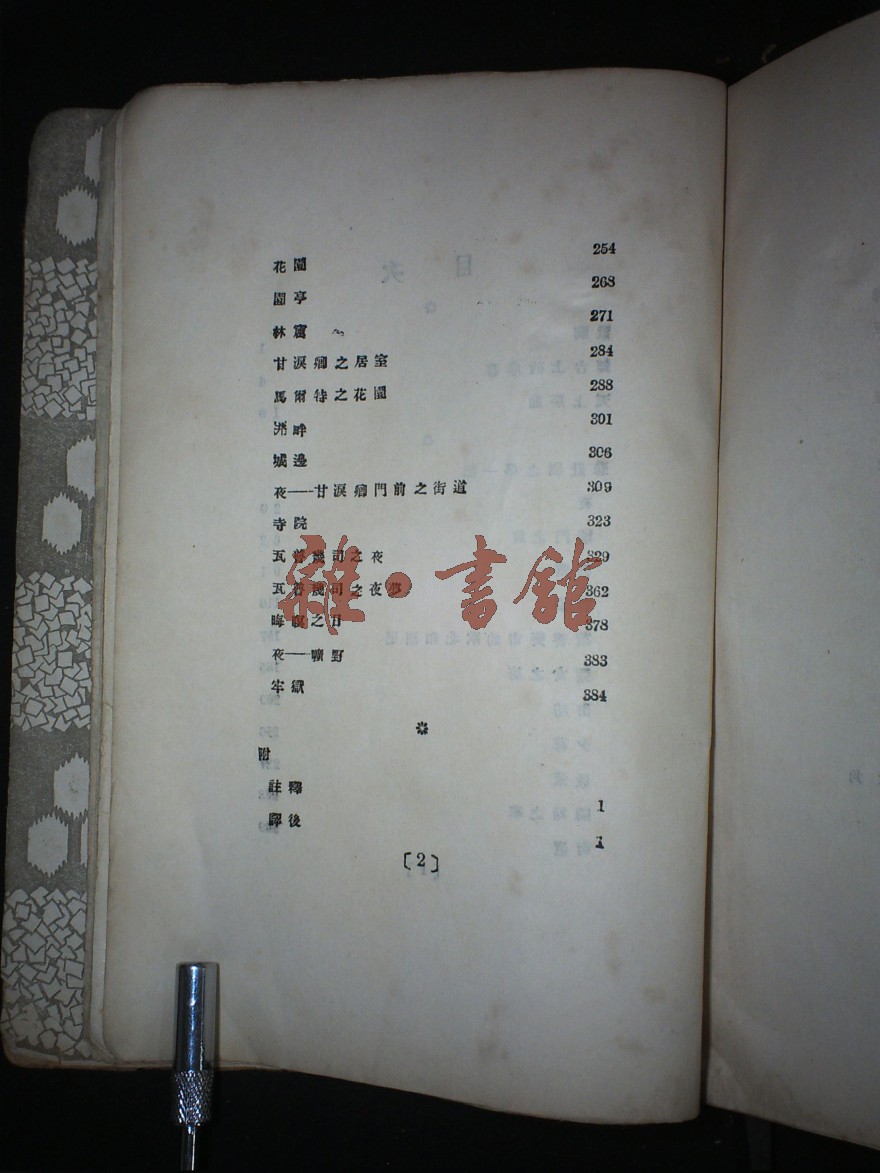 花園 254
園亭 268
林窟 271
甘淚卿之居室 284
馬爾特之花園 288
井畔 301
城邊 306
夜——甘淚卿門前之街道 309
寺院 323
瓦普幾司之夜 329
瓦普幾司之夜夢 362
晦暝之日 378
夜——曠野 383
牢獄 384
附
註釋 1
譯後 1
〔2〕
雜·書館